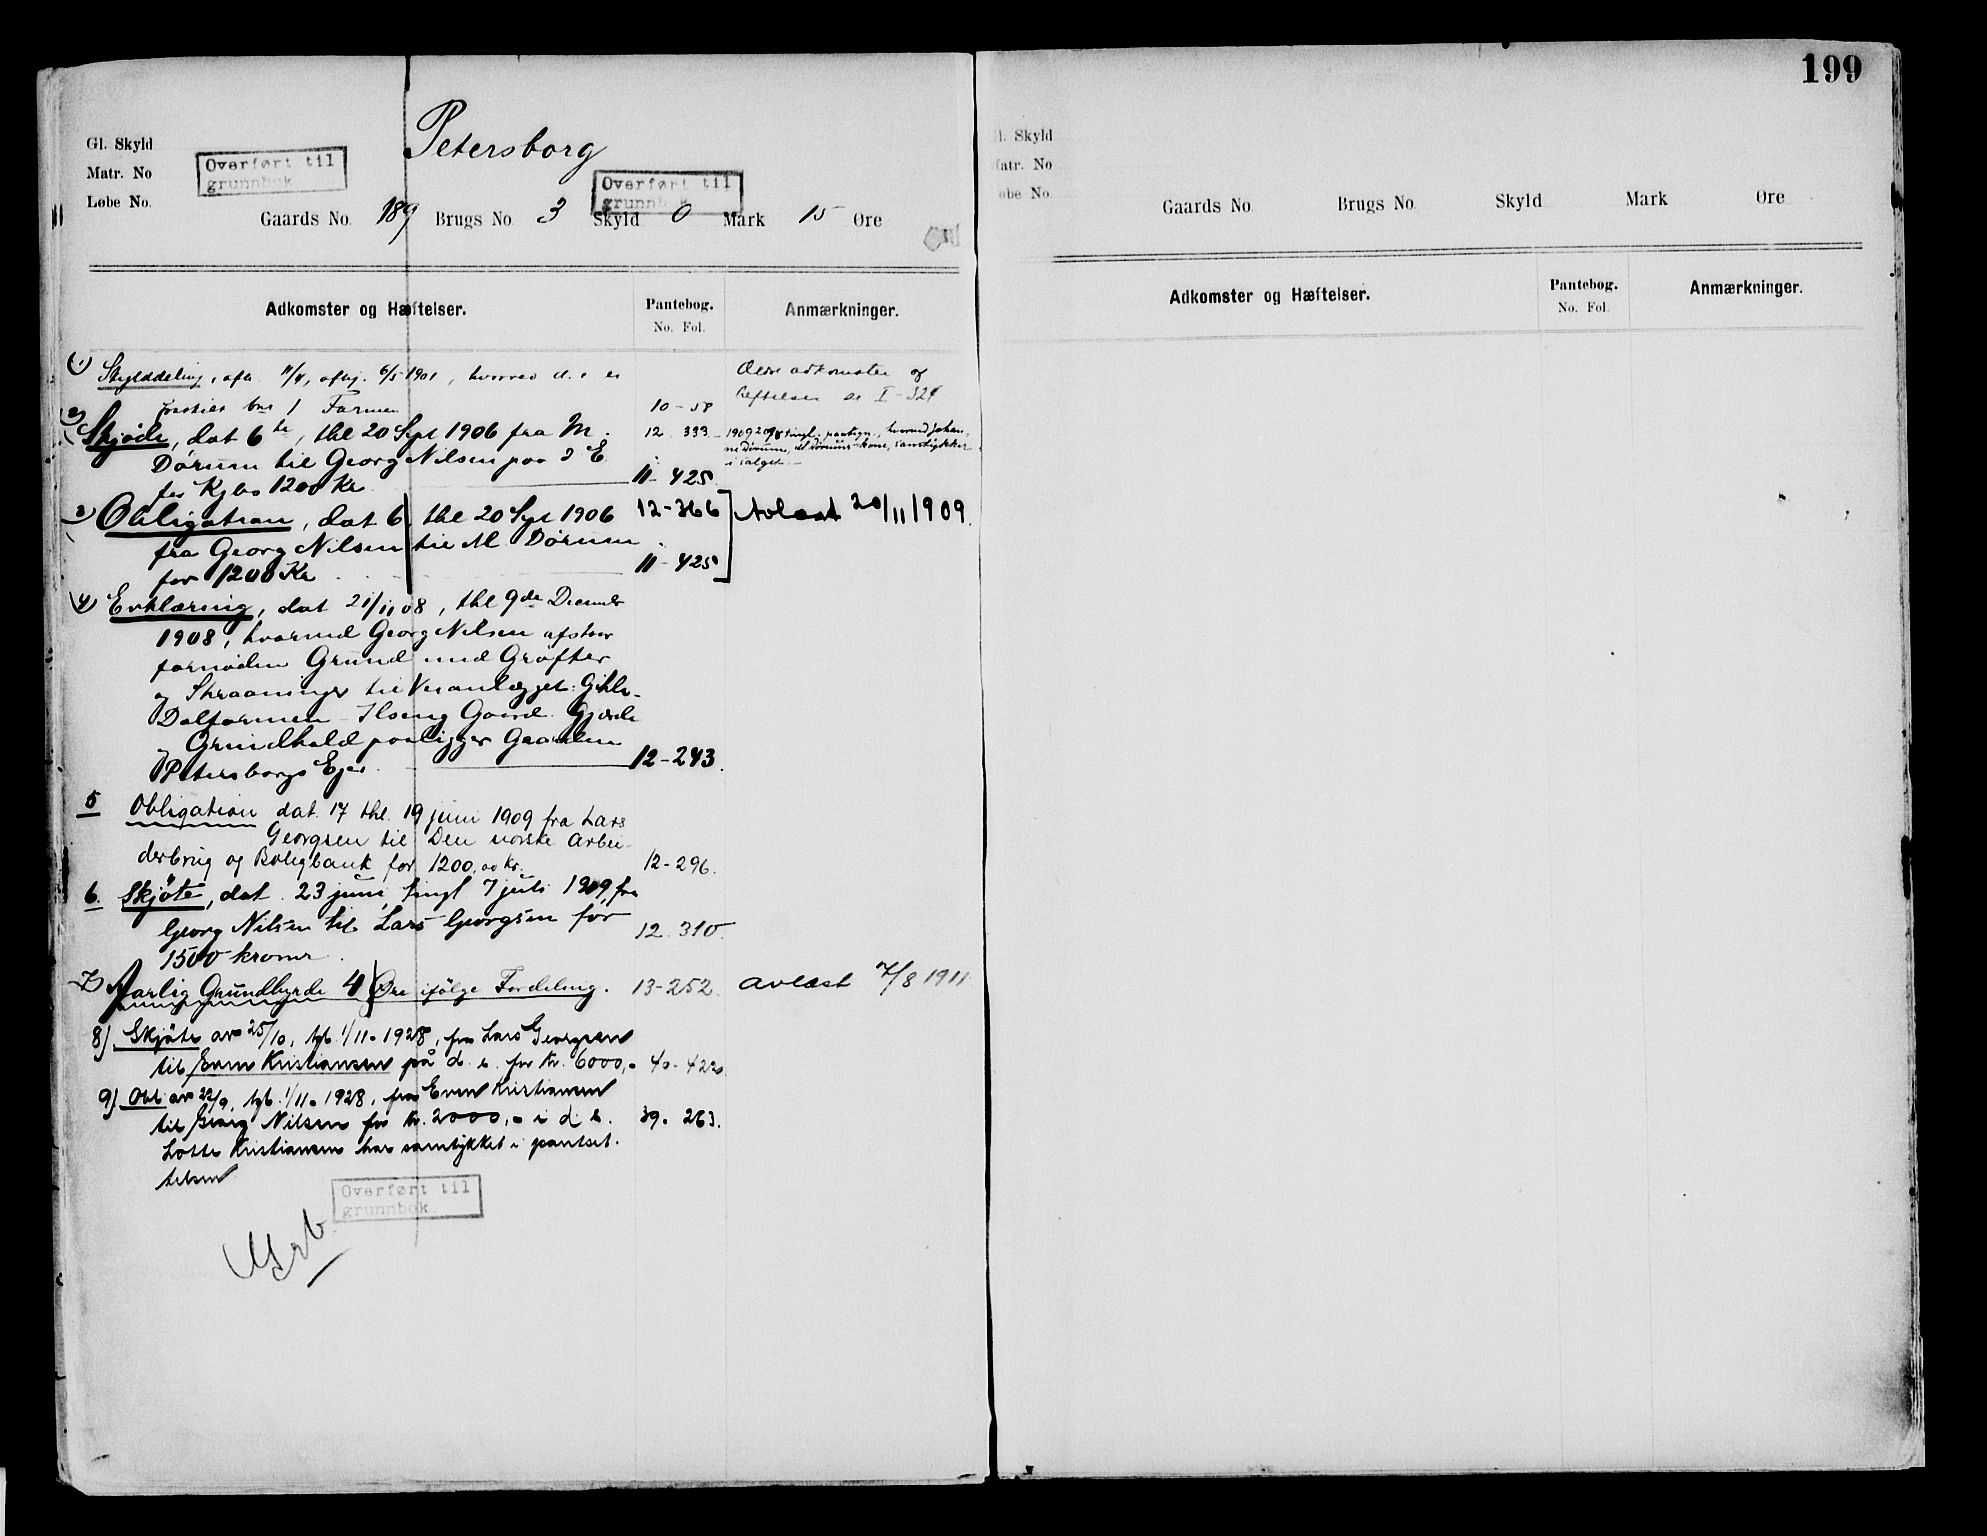 199
Petersborg
Gl. Skyld
Matr. No
Løbe No.
Overført til
grunnbok
Overført til
grunnbok
Gaards No. 189 Brugs No. 3 Skyld 0 Mark 15 Øre
Adkomster og Hæftelser.
Pantebog.
No. Fol.
Anmærkninger.
1) Skylddeling, afh. 11/4, aflyj. 6/5 1901, hvorved d. e. er
fraskilt bno 1 Farmen 10-58
Ældre adkomster og
heftelser se I - 324
2) Skjøde, dat 6te, thl 20 Sept 1906 fra M. 12. 333
Dørum til Georg Nilsen paa d E.
for Kjbs 1200 Kr. 11-425
1909 tingl. paategn., hvorved Johan-
ne Dørum, M Dørums kone, samtykker
i salget.
3) Obligation, dat 6, thl 20 Sept 1906 12-366
fra Georg Nilsen til M Dørum
for 1200 Kr 11-425
Avlæst 20/11 1909.
4) Erklæring, dat 21/11 08, thl 9de December
1908, hvorved Georg Nilsen afstaar
fornøden Grund med Grøfter
og Skraaninger til Veianlægget: Gihle-
Dalfarmen - Ilseng Gaard. Gjerde
og Grindhold paaligger Gaarden
Petersborgs Ejer. 12-243.
5 Obligation dat. 17 thl. 19 juni 1909 fra Lars
Georgsen til Den norske Arbei-
derbrug og Boligbank for 1200,00 Kr. 12-296.
6. Skjøte, dat. 23 juni, tingl 7 juli 1909, fra
Georg Nilsen til Lars Georgsen for 12. 310.
1500 kroner.
7) Aarlig Grundbyrde 4 Øre ifølge Fordeling. 13-252. avlæst 7/8 1911.
8) Skjøte av 25/10, tgl. 1/11-1928, fra Lars Georgsen
til Even Kristiansen på d. e. for kr. 6000,- 40-422
9) Obl av 22/9, tgl. 1/11-1928, fra Even Kristiansen
til Georg Nilsen for kr. 2000,- i d. e. 39. 263.
Lotte Kristiansen har samtykket i pantset-
telsen
Overført til
grunnbok
Gl. Skyld
Matr. No
Løbe No.
Gaards No. Brugs No. Skyld Mark Øre
Adkomster og Hæftelser.
Pantebog.
No. Fol.
Anmærkninger.